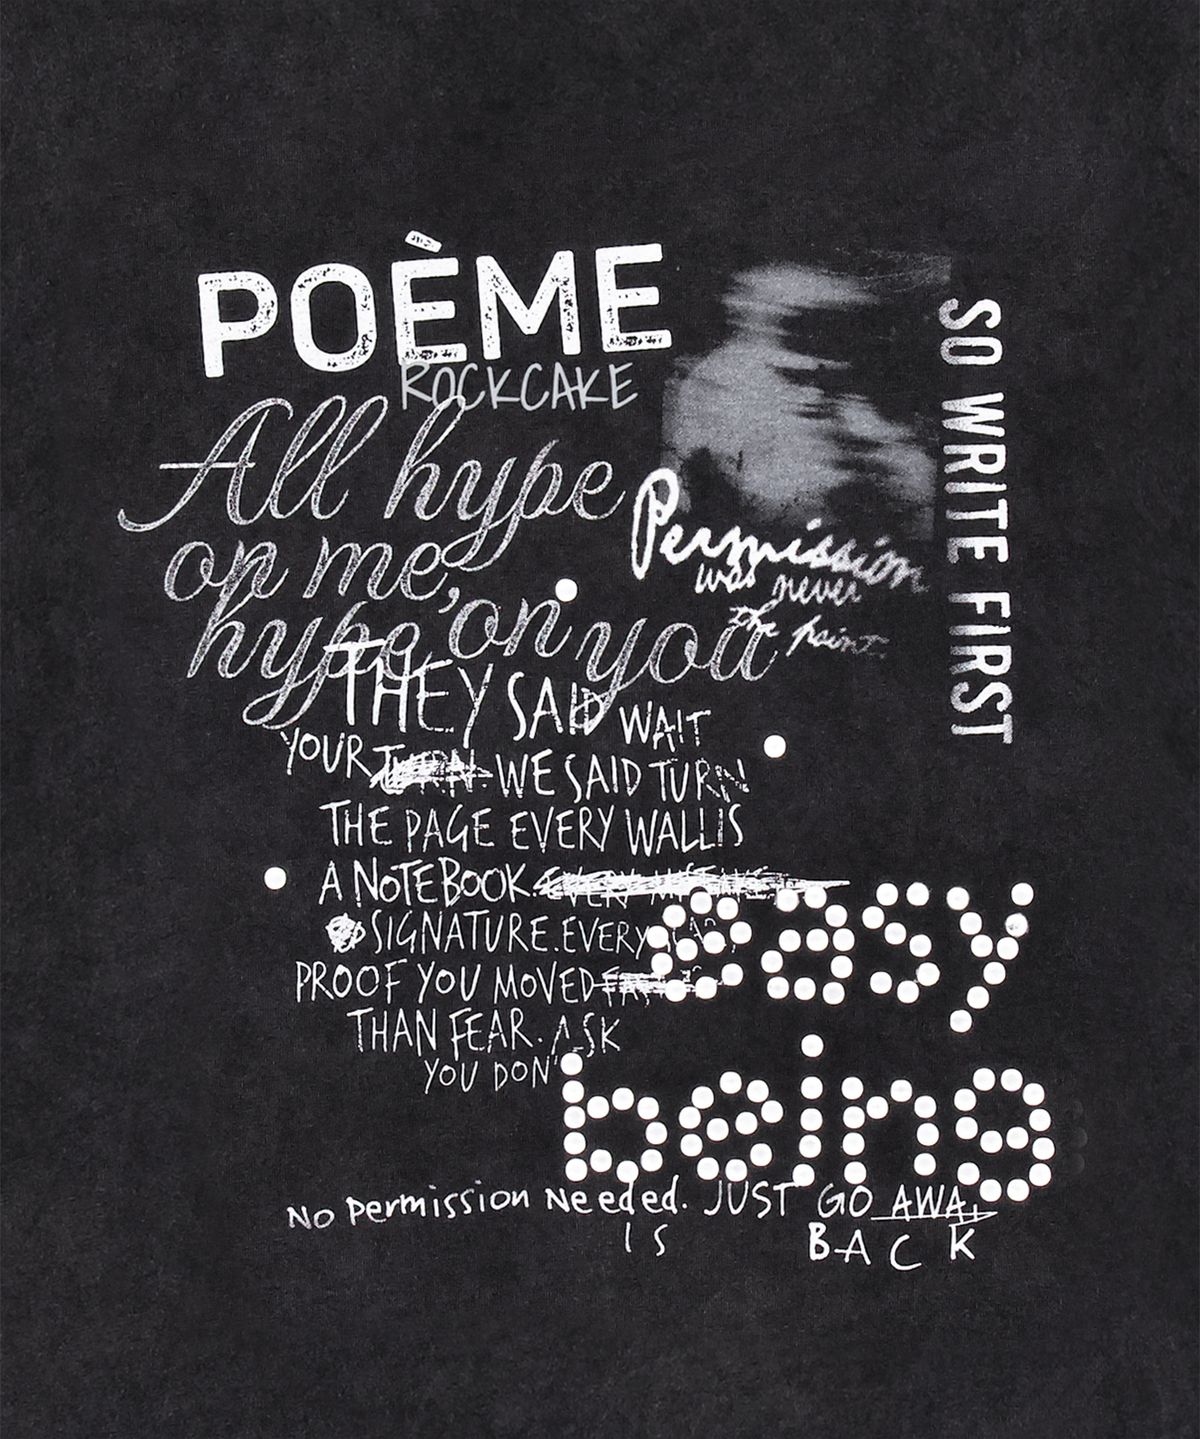 POÈME
ROCKCAKE
All hype
on me,
hype on you
Permission
was never
the point.
SO WRITE FIRST
THEY SAID WAIT
YOUR TURN WE SAID TURN
THE PAGE EVERY WALL IS
A NOTEBOOK.
SIGNATURE. EVERY
PROOF YOU MOVED
THAN FEAR. ASK
YOU DON'
easy
being
No Permission Needed. JUST GO AWA
IS BACK